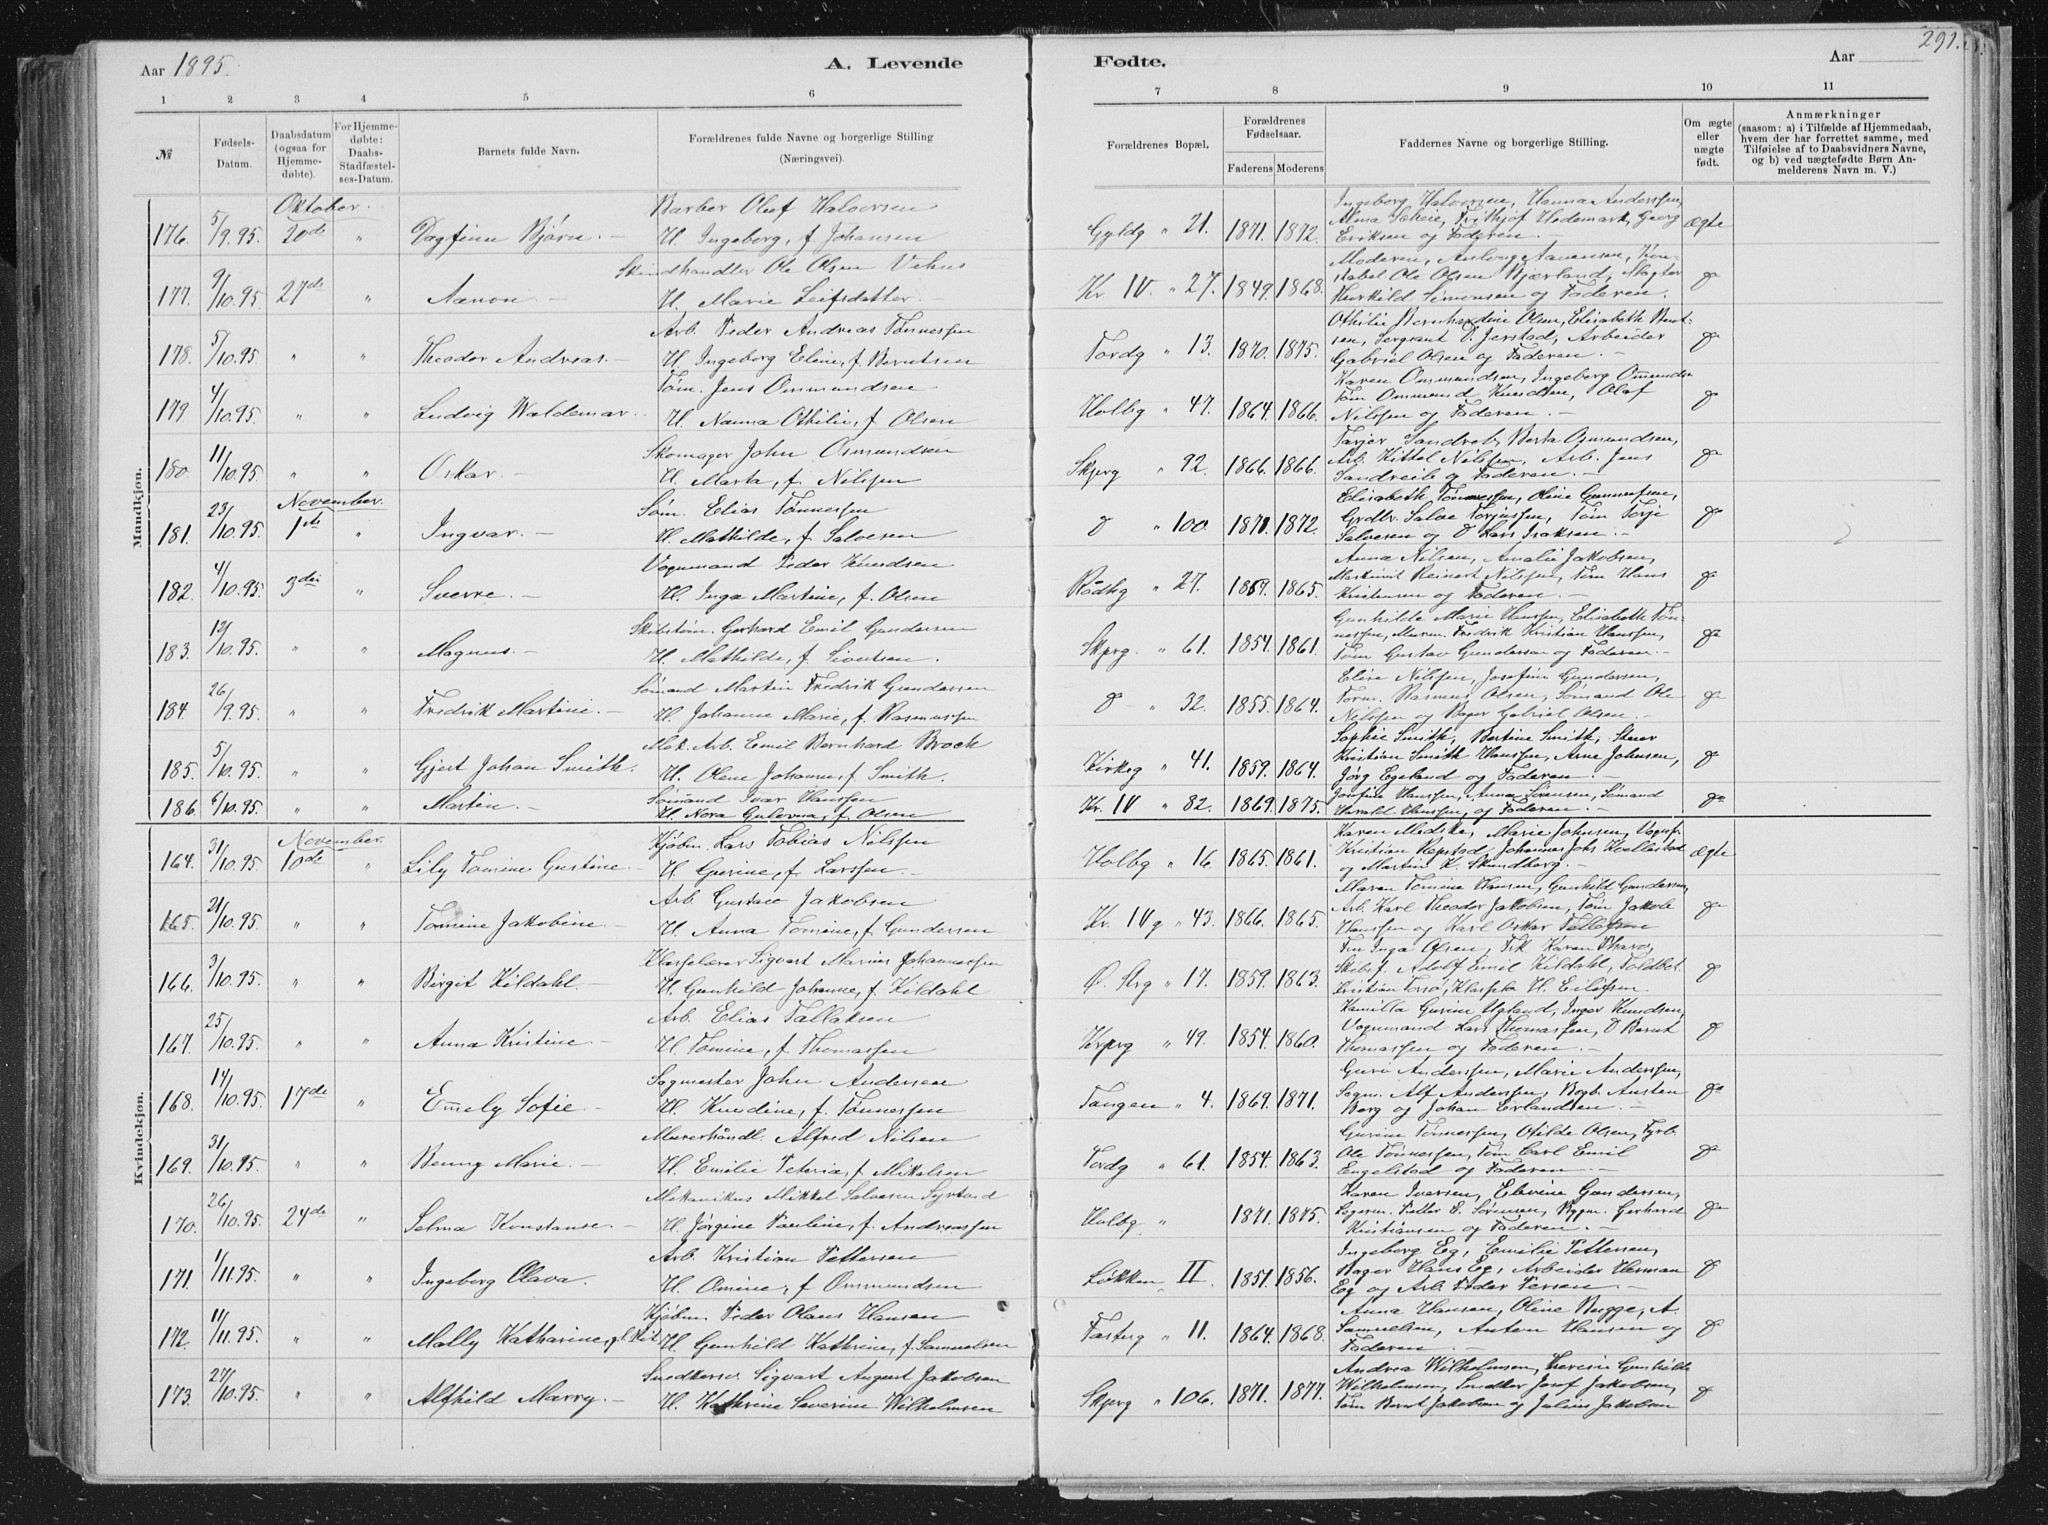 291.
Aar 1895.
A. Levende Fødte.
Aar
1 2 3 4 5 6 7 8 9 10 11
№
Fødsels-Datum.
Daabsdatum (ogsaa for Hjemmedøbte).
For Hjemmedøbte: Daabs-Stadfæstelses-Datum.
Barnets fulde Navn.
Forældrenes fulde Navne og borgerlige Stilling (Næringsvei).
Forældrenes Bopæl.
Forældrenes Fødselsaar.
Faderens Moderens
Faddernes Navne og borgerlige Stilling.
Om ægte eller uægte født.
Anmærkninger
(saasom: a) i Tilfælde af Hjemmedaab, hvem der har forrettet samme, med Tilføielse af to Daabsvidners Navne, og b) ved uægtefødte Børn Anmelderens Navn m. V.)
Mandkjøn.
Oktober.
176. 5/9.95. 20de " Dagfinn Bjørn. — Barber Oluf Halvorsen H. Ingeborg, f. Johansen Gyldg " 21. 1871. 1872. Ingeborg Halvorsen, Hanna Anderssen, Alma Scheie, Frithjof Hedemark, Georg Eriksen og Faderen. — ægte
177. 9/10.95 27de " Aanon. — Skindhandler Ole Olsen Vehus H. Marie Leifsdatter. — Kr. IV. " 27. 1849. 1868. Moderen, Aanensen, Konstabel Ole Olsen Bjærland, Simonsen og Faderen.
178. 5/10.95 " " Theodor Andreas. — Arb. Peder Andreas Tønnessen H. Ingeborg Eline, f. Berntsen Tordg " 13. 1870. 1875. Othilie Bernhardine Olsen, Elisabeth Berntsen, Sergeant O. Jerstad, Arbeider Gabriel Olsen og Faderen. —
179 4/10.95. " " Ludvig Waldemar. Tøm. Jens Ommundsen H. Nanna Othilie, f. Olsen Holbg " 47. 1864. 1866. Karen Ommundsen, Ingeborg Tøm Ommund Knudsen, Olaf Nilssen og Faderen. —
180. 11/10.95. " " Oskar. — Skomager John Osmundsen H. Marta, f. Nilssen Skjerg " 92. 1866. 1866. Berta Osmundsen, Arb. Kittel Nilssen, Arb. Jens og Faderen. —
November.
181. 23/10.95. 1ste " Ingvar. — Søm. Elias Tønnessen H. Mathilde, f. Salvesen " 100. 1871. 1872. Elisabeth Tønnessen, Oline Gunnufsen, Salve Torjussen, Tøm Torje Salvesen og Lars Isaksen. —
182. 4/10.95. 3die " Sverre. — Vognmand Peder Knudsen H. Inga Martine, f. Olsen Rådhg " 27. 1859. 1865. Anna Nilsen, Amalie Jakobsen, Maskinist Reinert Nilssen, Tøm Hans Kristensen og Faderen. —
183. 13/10.95. " " Magnus. — Skibstøm. Gerhard Emil Gundersen H. Mathilde, f. Sivertsen. Skjerg. " 61. 1854. 1861. Gunhilde Marie Hanssen, Elisabeth Tønnessen, Fredrik Kristian Hanssen, Tøm Gustav Gundersen og Faderen. —
184. 26/9.95. " " Fredrik Martin. — Sømand Martin Fredrik Gundersen H. Johanne Marie, f. Rasmussen " 32. 1855. 1864. Elise Nilssen, Josefine Gundersen, Rasmus Olsen, Sømand Ole Nilssen og Bager Gabriel Olsen. —
185. 5/10.95. " " Gjert Johan Smith. Mek. Arb. Emil Bernhard Brock H. Olene Johanne, f. Smith. Kirkeg " 41. 1859. 1864. Sophie Smith, Bertine Smith, Kristian Smith Hanssen, Arne Johnsen, Jørg Egeland og Faderen. —
186. 6/10.95. " " Martin. — Sømand Ivar Hanssen H. Nora Gulovna, f. Olsen Kr. IV " 82. 1869. 1875. Josefine Hanssen, Anna Sørensen, Sømand Harald Hanssen, og Faderen. —
Kvindekjøn.
November.
164. 31/10.95 10de " Lily Tomine Gustine. Kjøbm. Lars Tobias Nilssen H. Gurine, f. Larssen. — Holbg " 16 1865. 1861. Karen Mediske, Marie Johnsen, Kristian Repstad, Johannes Johs og Martin K. Skundberg. — ægte
165. 21/10.95. " " Tomine Jakobine. — Arb. Gustav Jakobsen H. Anna Tomine, f. Gundersen Kr. IV g " 43. 1866. 1865. Maren Tomine Hansen, Gunhild Gundersen, Arb. Karl Theodor Jakobsen, Tøm Jakob Hanssen og Karl Oskar Tellefsen
166. 3/10.95. " " Birgit Kildahl. — Klasselærer Sigvart Marius Johannessen H. Gunhild Johanne, f. Kildahl Ø. Strg " 17. 1859. 1863. Fru Inga Olsen, Frk Karen Skibsf. Adolf Emil Kildahl, Toldbet. Kristian H. Eilefsen.
167. 25/10.95. " " Anna Kristine. — Arb. Elias Tallaksen H. Tomine, f. Thomassen " 49. 1854. 1860. Kamilla Gurine Ugland, Inger Knudsen, Vognmand Lars Thomassen, Bernt Thomassen og Faderen. —
168. 14/10.95. 17de " Emely Sofie. — Sagmester John Andersen H. Knudine, f. Tønnessen Tangen " 4. 1869. 1871. Guro Anderssen, Marie Anderssen, Sagm. Alf Anderssen, Bogb. Austen Berg og Johan Erlandsen. —
169. 31/10.95. " " Benny Marie. — Murerhåndl. Alfred Nilsen H. Emilie Peteria, f. Mikalsen Tordg " 61. 1854. 1863. Gurine Tønnessen, Otilde Olsen, Fyrb. Ole Tønnessen, Tøm Carl Emil Engelstad og Faderen. —
170. 26/10.95. 24de " Selma Konstanse. — Mekanikus Mikkel Salvesen Syrtand H. Jørgine Pauline, f. Andreassen Holbg " 1871. 1875. Karen Iversen, Elevine Gundersen, Petter E. Sørensen, Bygm. Gerhard Kristiansen og Faderen. —
171. 1/11.95. " " Ingeborg Olava. Arb. Kristian Pettersen H. Omine, f. Ommundsen Løkken II. 1857. 1856. Ingeborg Eg, Emilie Pettersen, Bager Hans Eg, Arbeider Herman Eg og Arb. Peder Persen. —
172. 11/11.95. " " Mally Katharine Kjøbm. Peder Olaus Hansen H. Gunhild Kathrine, f. Samuelsen Fæsterg " 11. 1864. 1868. Anna Hansen, Oline Bugge, A. Samuelsen, Anton Hansen og Faderen. —
173. 27/10.95 " " Alfhild Marry. — Snedkersv. Sigvart August Jakobsen H. Kathrine Severine Wilhelmsen Skjerg " 106. 1871. 1877. Andrea Wilhelmsen, Theresie Gunhilde Wilhelmsen, Snedker Josef Jakobsen, Tøm Bernt Jakobsen og Julius Jakobsen